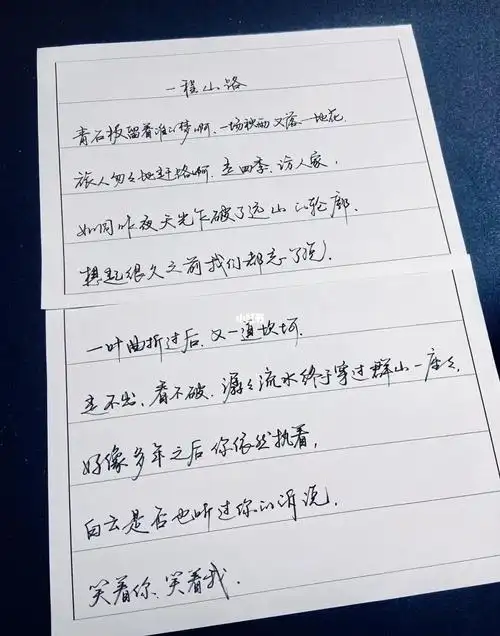 一程山路
青石板留着谁的梦啊，一场秋雨又落一地花，
旅人匆匆地赶路啊，走四季，访人家，
如同昨夜天光乍破了远山的轮廓，
想起很久之前我们都忘了说，
一叶曲折过后，又一道坎坷，
走不出，看不破，潺潺流水终于穿过群山一座座，
好像多年之后你依然执着，
白云是否也听过你的诉说，
笑着你，笑着我，
小红书